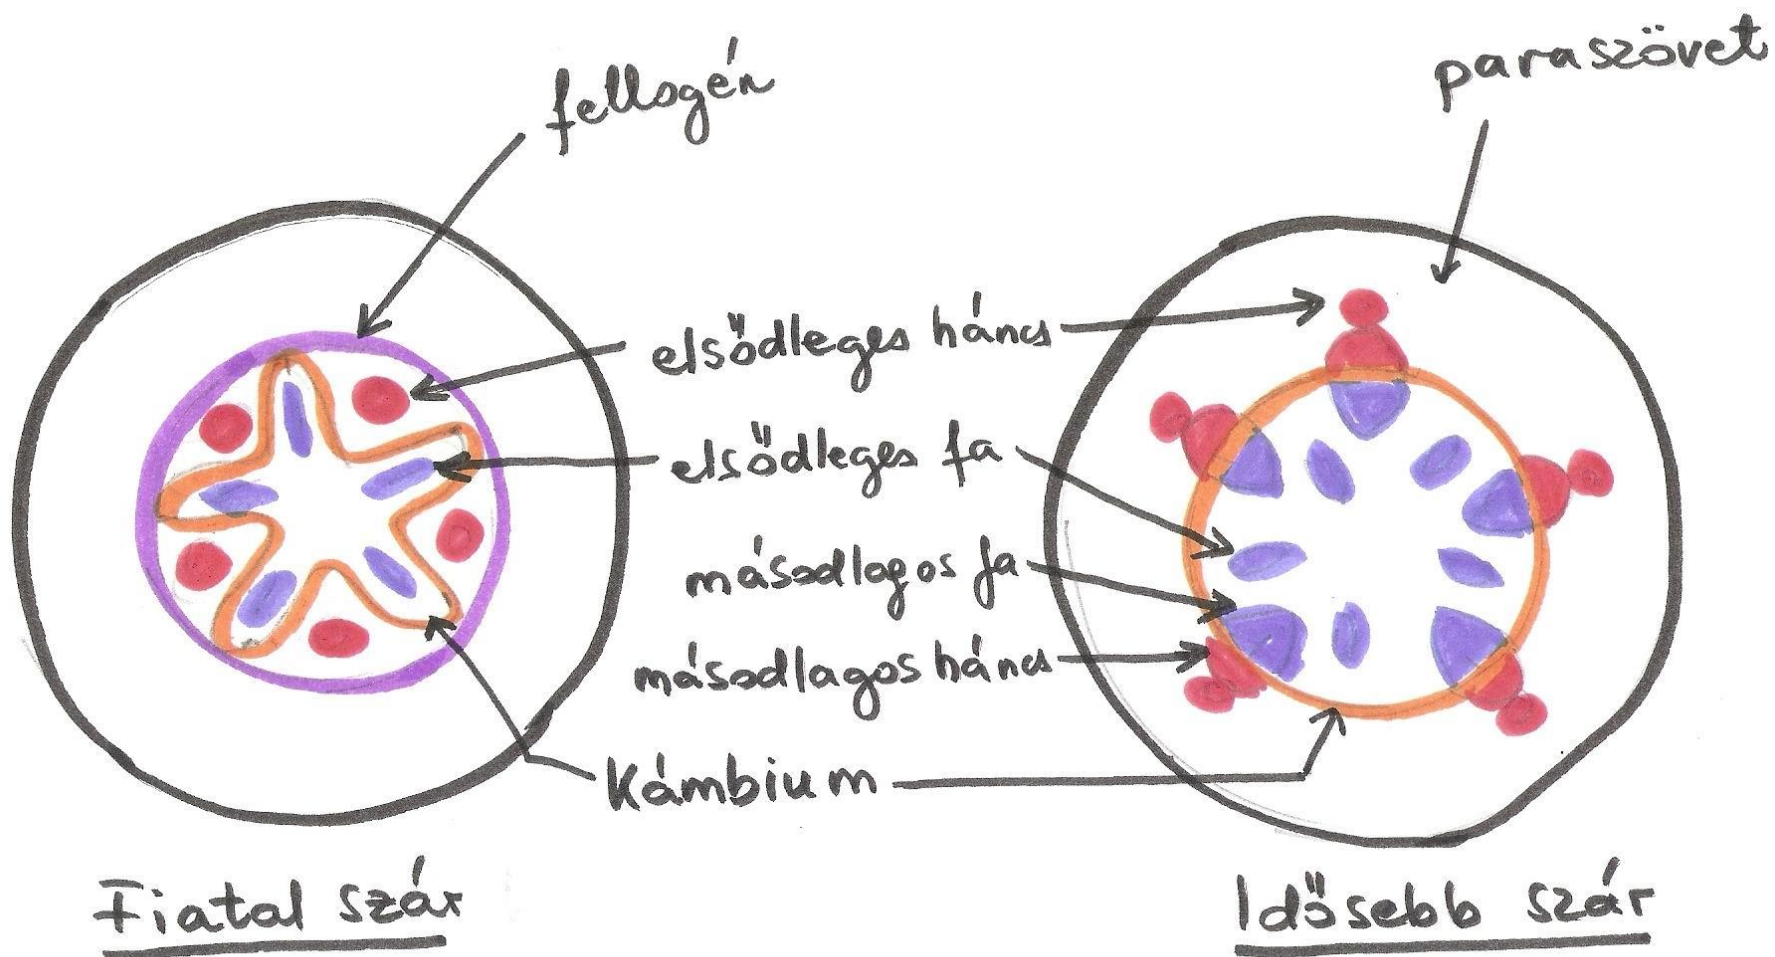 fellogén
paraszövet
elsődleges háncs
elsődleges fa
másodlagos fa
másodlagos háncs
Kámbium
Fiatal szár
Idősebb szár